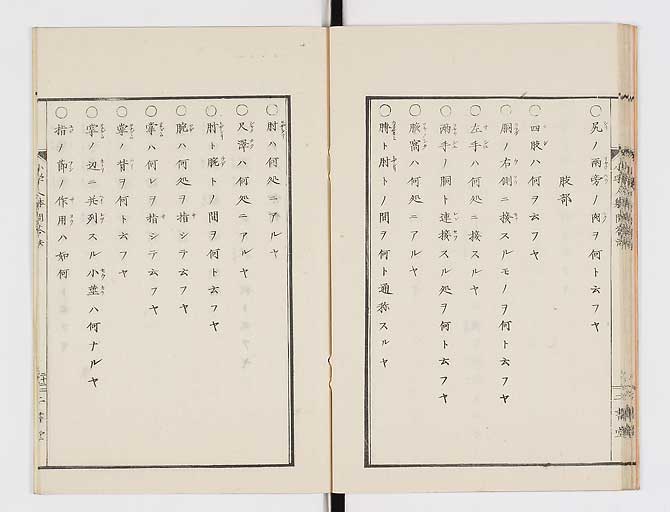 ○尻ノ両旁ノ肉ヲ何ト云フヤ
肢部
○四肢ハ何ヲ云フヤ
○胴ノ右側ニ接スルモノヲ何ト云フヤ
○左手ハ何処ニ接スルヤ
○両手ノ胴ト連接スル処ヲ何ト云フヤ
○腋窩ハ何処ニアルヤ
○膊ト肘トノ間ヲ何ト通称スルヤ
○肘ハ何処ニアルヤ
○尺澤ハ何処ニアルヤ
○肘ト腕トノ間ヲ何ト云フヤ
○腕ハ何処ヲ指シテ云フヤ
○掌ハ何レヲ指シテ云フヤ
○掌ノ背ヲ何ト云フヤ
○掌ノ辺ニ共列スル小莖ハ何ナルヤ
○指ノ節ノ作用ハ如何